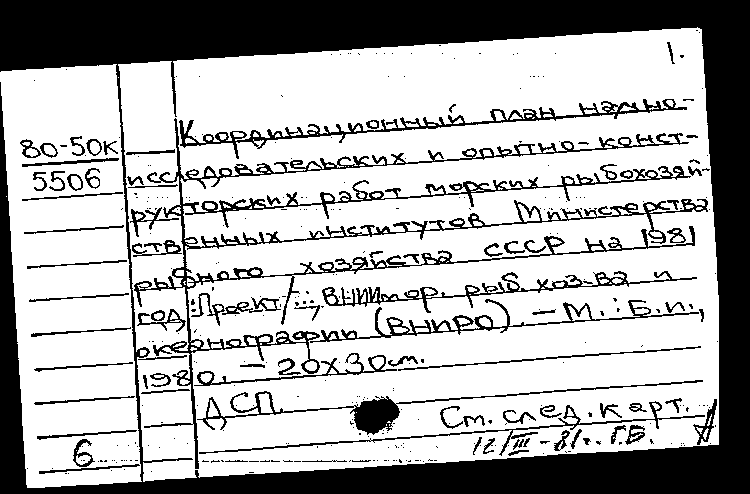 1.
80-50к
5506
Координационный план научно-
исследовательских и опытно-конст-
рукторских работ морских рыбохозяй-
ственных институтов Министерства
рыбного хозяйства СССР на 1981
год: Проект/...; ВНИИ мор. рыб. хоз-ва и
океанографии (ВНИРО). – М.: Б.и.,
1980. – 20х30 см.
ДСП
См. след. карт.
12/III-81г. Г.В.
6